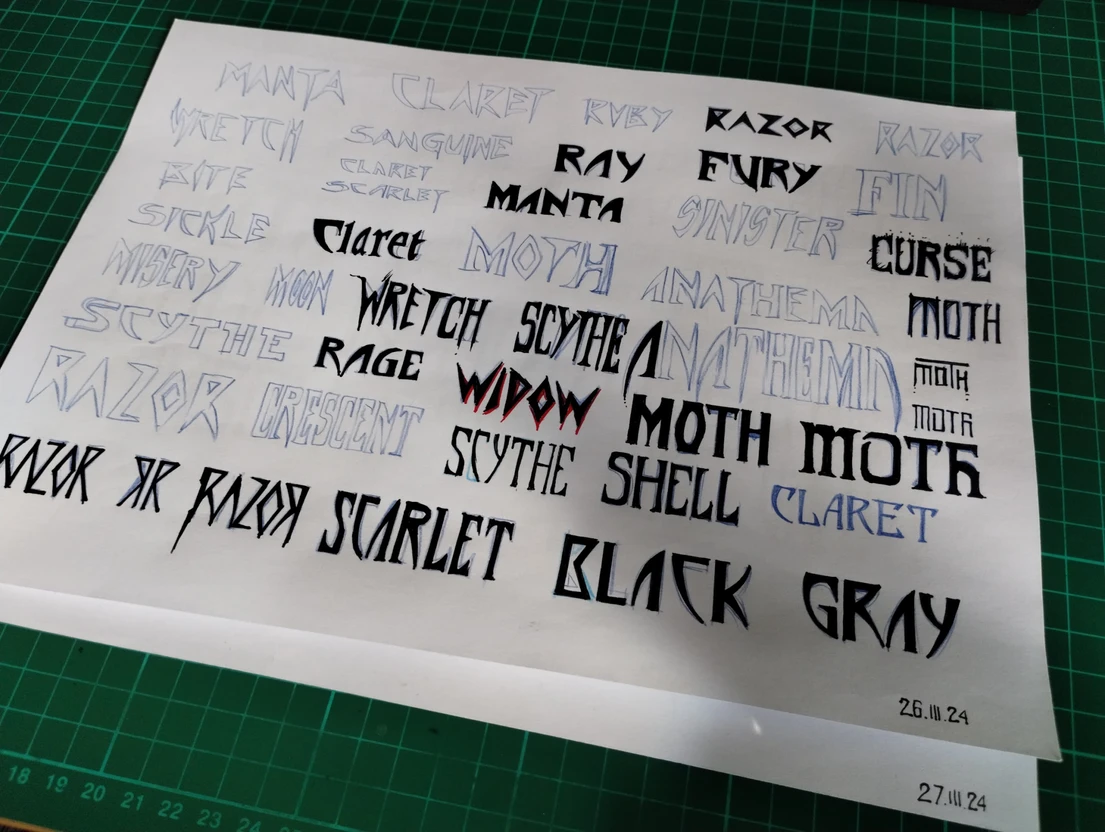 MANTA CLARET RUBY RAZOR RAZOR
WRETCH SANGUINE RAY FURY FIN
BITE CLARET
SCARLET MANTA SINISTER
SICKLE Claret MOTH CURSE
MISERY MOON WRETCH SCYTHE ANATHEMA MOTH
SCYTHE RAGE ANATHEMA MOTH
RAZOR CRESCENT WIDOW MOTH MOTH MOTH
RAZOR ЯR RAZOЯ SCYTHE SHELL CLARET
SCARLET BLACK GRAY
26.III.24
27.III.24
18 19 20 21 22 23 24